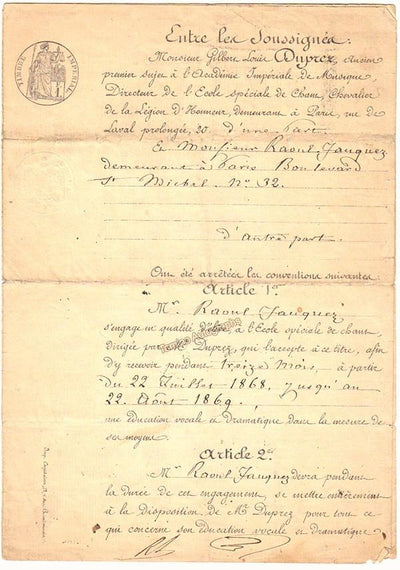 TIMBRE IMPERIAL
Entre les Soussignés:
Monsieur Gilbert Louis Duprez, ancien
premier sujet à l'Académie Impériale de Musique,
Directeur de l'Ecole spéciale de Chant, Chevalier
de la Légion d'Honneur, demeurant à Paris, rue de
Laval prolongée, 20. d'une part.
Et Monsieur Raoul Jauquez
demeurant à Paris Boulevard
St Michel. No 32.
d'autre part.
Ont été arrêtées les conventions suivantes:
Article 1er
Mr. Raoul Jauquez
s'engage en qualité d'élève à l'Ecole spéciale de chant,
dirigée par Mr Duprez, qui l'accepte à ce titre, afin
d'y recevoir pendant treize mois, à partir
du 22 Juillet 1868, jusqu'au
22. Août 1869.
une éducation vocale et dramatique dans la mesure de
ses moyens.
Article 2e
Mr Raoul Jauquez devra pendant
la durée de cet engagement, se mettre entièrement
à la disposition de Mr Duprez pour tout ce
qui concerne son éducation vocale et dramatique